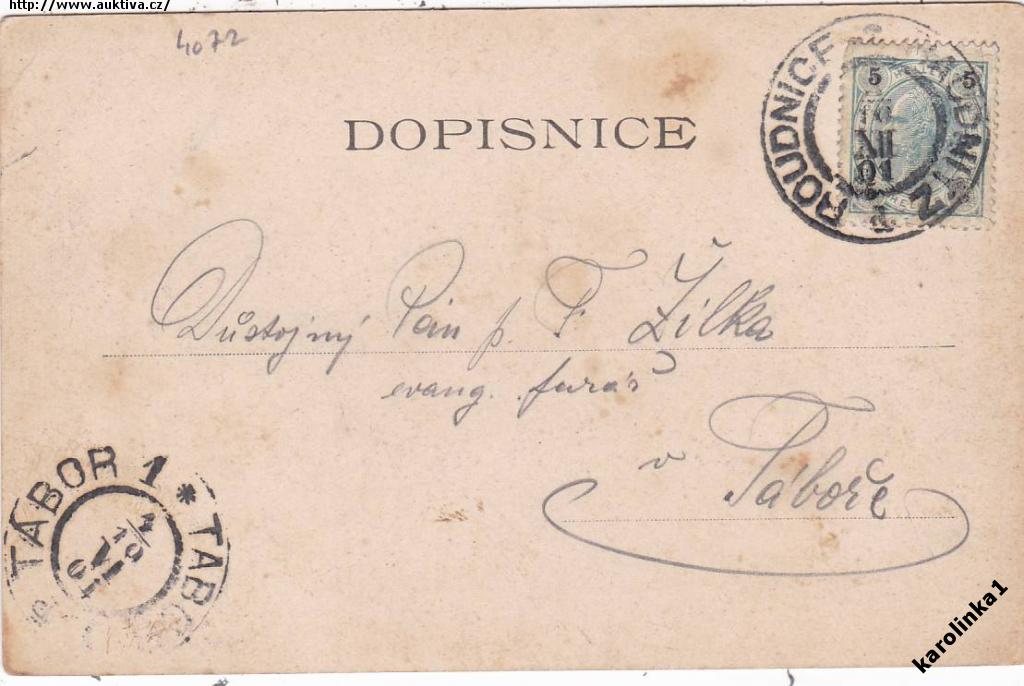 http://www.auktiva.cz/
4072
DOPISNICE
ROUDNICE
5 5
VI
01
Důstojný Pán p. F. Žilka
evang. farář
v Táboře
TÁBOR 1 * TÁBO
VI
01
karolinka1